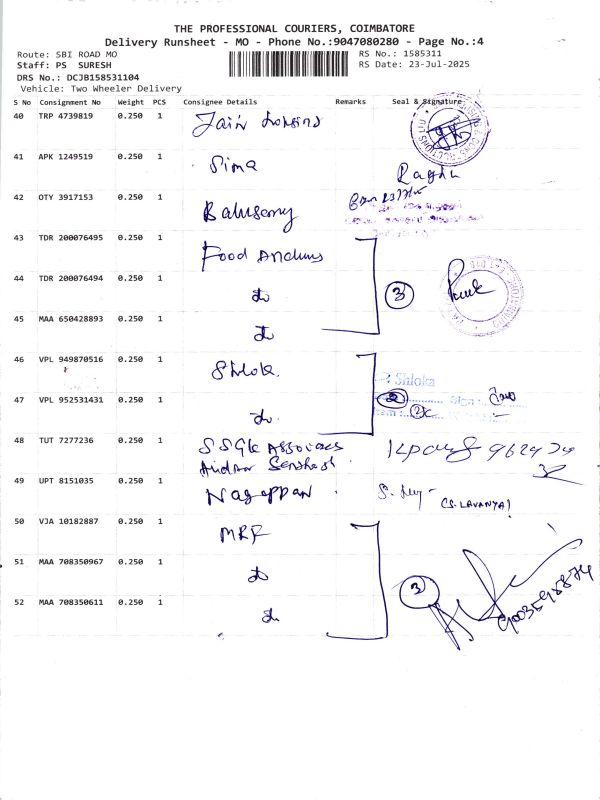 THE PROFESSIONAL COURIERS, COIMBATORE
Delivery Runsheet - MO - Phone No.:9047080280 - Page No.:4
Route: SBI ROAD MO RS No.: 1585311
Staff: PS SURESH RS Date: 23-Jul-2025
DRS No.: DCJB158531104
Vehicle: Two Wheeler Delivery
S No Consignment No Weight PCS Consignee Details Remarks Seal & Signature
40 TRP 4739819 0.250 1 Jain
41 APK 1249519 0.250 1 Sima
42 OTY 3917153 0.250 1
43 TDR 200076495 0.250 1 Food
44 TDR 200076494 0.250 1 do 3
45 MAA 650428893 0.250 1 do
46 VPL 949870516 0.250 1 Shlok.
Shloka
47 VPL 952531431 0.250 1 do 2
48 TUT 7277236 0.250 1
49 UPT 8151035 0.250 1 Nagappan (S. LAVANYA)
50 VJA 10182887 0.250 1 MRF
51 MAA 708350967 0.250 1 do 3
52 MAA 708350611 0.250 1 do